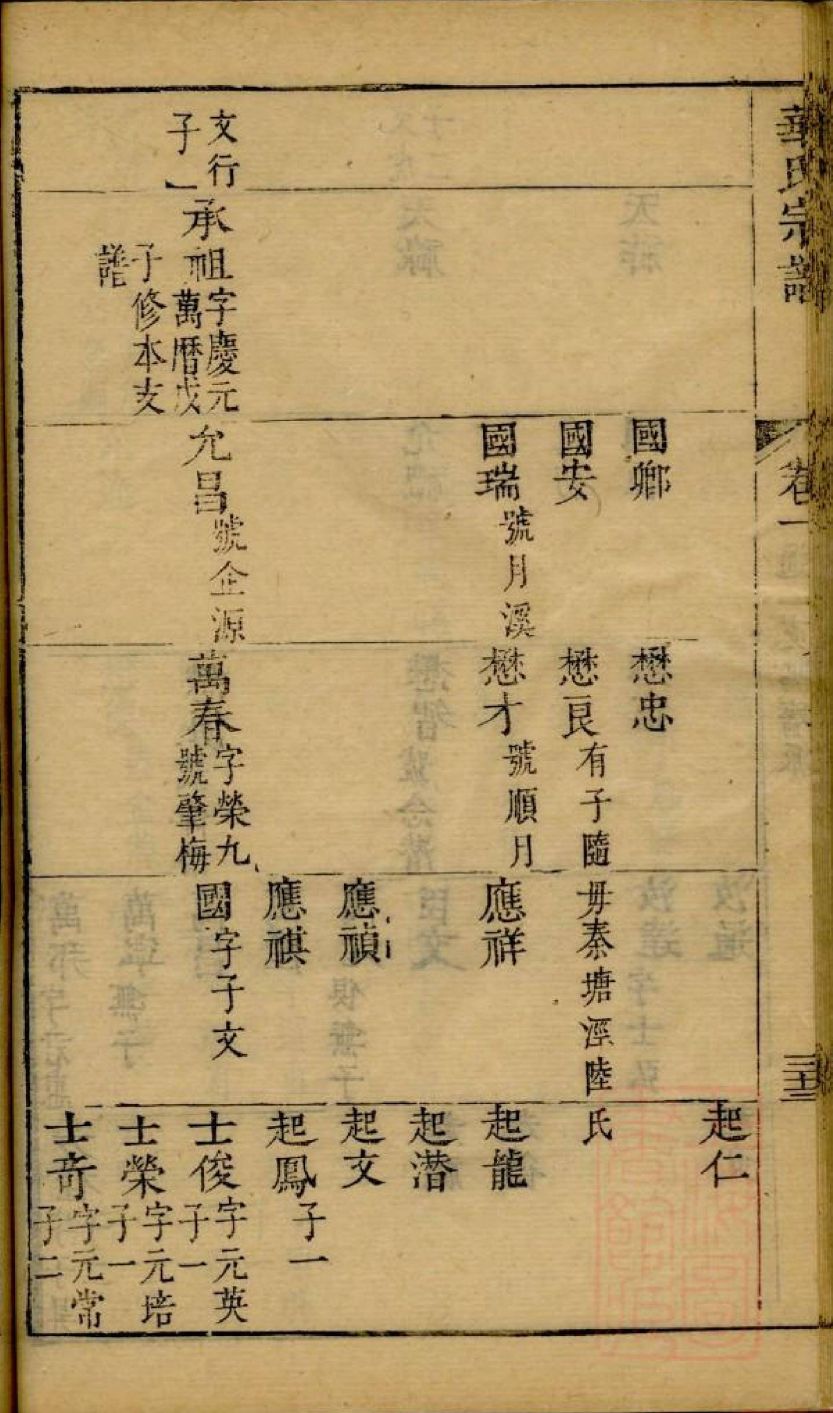 華氏宗譜
卷一
三十三
文行
子一
承祖
字慶元
萬曆戊
子修本支
譜
國卿
國安
國瑞
號月溪
允昌
號企源
懋忠
懋良
有子隨
毋秦塘涇陸
氏
懋才
號順月
萬春
字榮九
號肇梅
應祥
應禎
應祺
國
字子文
起仁
起龍
起潛
起文
起鳳
子一
士俊
字元英
子一
士榮
字元培
子一
士奇
字元常
子二